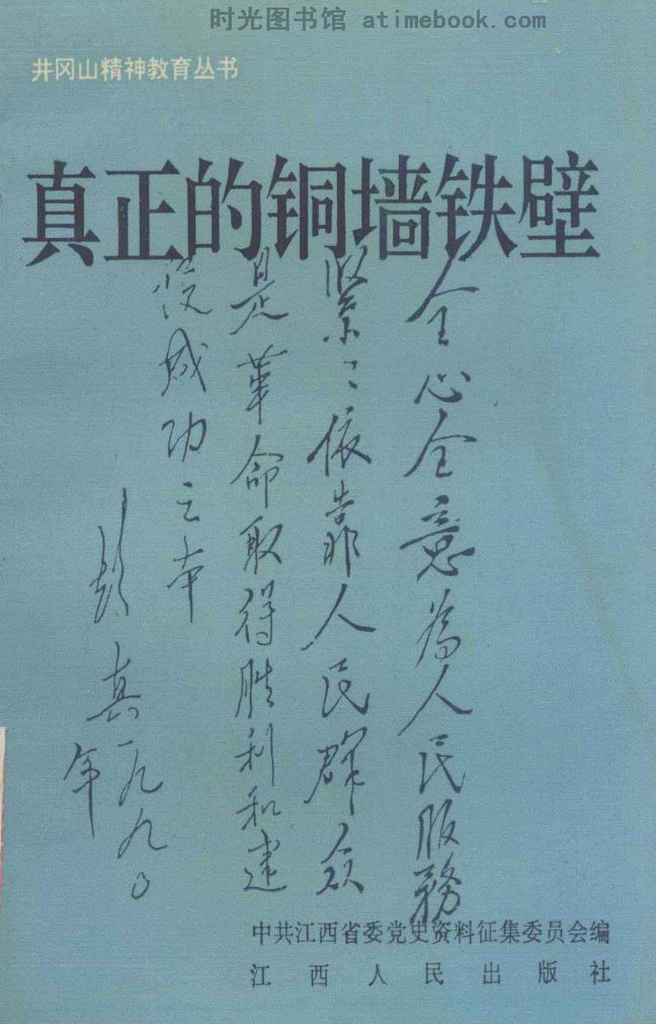 时光图书馆 atimebook.com
井冈山精神教育丛书
真正的铜墙铁壁
全心全意为人民服務
紧〻依靠人民群众
是革命取得胜利和建
设成功之本
彭真一九九〇
年
中共江西省委党史资料征集委员会编
江西人民出版社